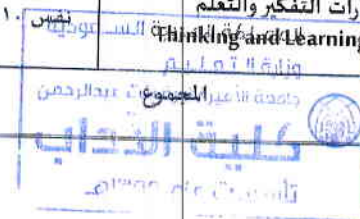 مهارات التفكير والتعلم
نفس ١٠
Thinking and Learning
المملكة العربية السعودية
وزارة التعليم
جامعة الأميرة نورة بنت عبدالرحمن
المجموع
كلية الآداب